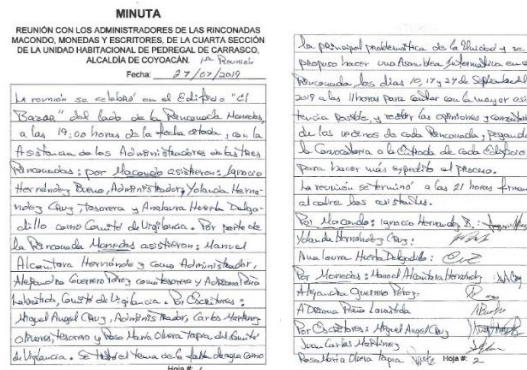 MINUTA
REUNIÓN CON LOS ADMINISTRADORES DE LAS RINCONADAS
MACONDO, MONEDAS Y ESCRITORES, DE LA CUARTA SECCIÓN
DE LA UNIDAD HABITACIONAL DE PEDREGAL DE CARRASCO,
ALCALDÍA DE COYOACÁN. 1a Reunión
Fecha: 27/07/2019
La reunión se celebró en el Edificio "El
Bazar" del lado de la Rinconada Monedas,
a las 19:00 horas de la fecha citada, con la
Asistencia de los Administradores de las tres
Rinconadas: por Macondo asistieron: Ignacio
Hernández Bueno, Administrador, Yolanda Herná-
ndez Cruz, Tesorera y Analaura Huerta Delga-
dillo como Comité de Vigilancia. Por parte de
la Rinconada Monedas asistieron: Manuel
Alcantara Hernández como Administrador,
Alejandra Guerrero Pérez como tesorera y Adriana
Labastida, Comité de Vigilancia. Por Escritores:
Miguel Angel Cruz, Administrador, Carlos Martínez
Tesorero y Rosa María Olvera Tapia, del Comité
de Vigilancia. Se trató el tema de la falta de agua como
Hoja #: 1
la principal problemática de la Unidad y se
propuso hacer una Asamblea Informativa en c/
Rinconada, los días 10, 17 y 24 de Septiembre del
2019 a las 11 horas para contar con la mayor asis
tencia posible, y recibir las opiniones y comentarios
de los vecinos de cada Rinconada, pegando
la Convocatoria a la Entrada de cada Edificio
para hacer más expedito el proceso.
La reunión se terminó a las 21 horas firmando
al calce los asistentes.
Por Macondo: Ignacio Hernández B.:
Yolanda Hernández Cruz:
Ana laura Huerta Delgadillo:
Por Monedas: Manuel Alcantara Hernández
Alejandra Guerrero Pérez:
Adriana Labastida
Por Escritores: Miguel Angel Cruz
Juan Carlos Martínez
Rosa María Olvera Tapia Hoja #: 2